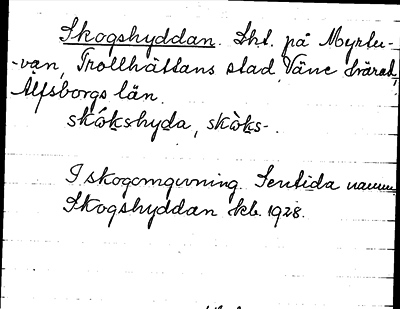 Skogshyddan. Lht. på Myrtu-
-van, Trollhättans stad, Väne härad,
Älfsborgs län.
skɷ́kshyda, skɷ̀ks-.
I skogomgivning. Sentida namn
Skogshyddan kb. 1928.